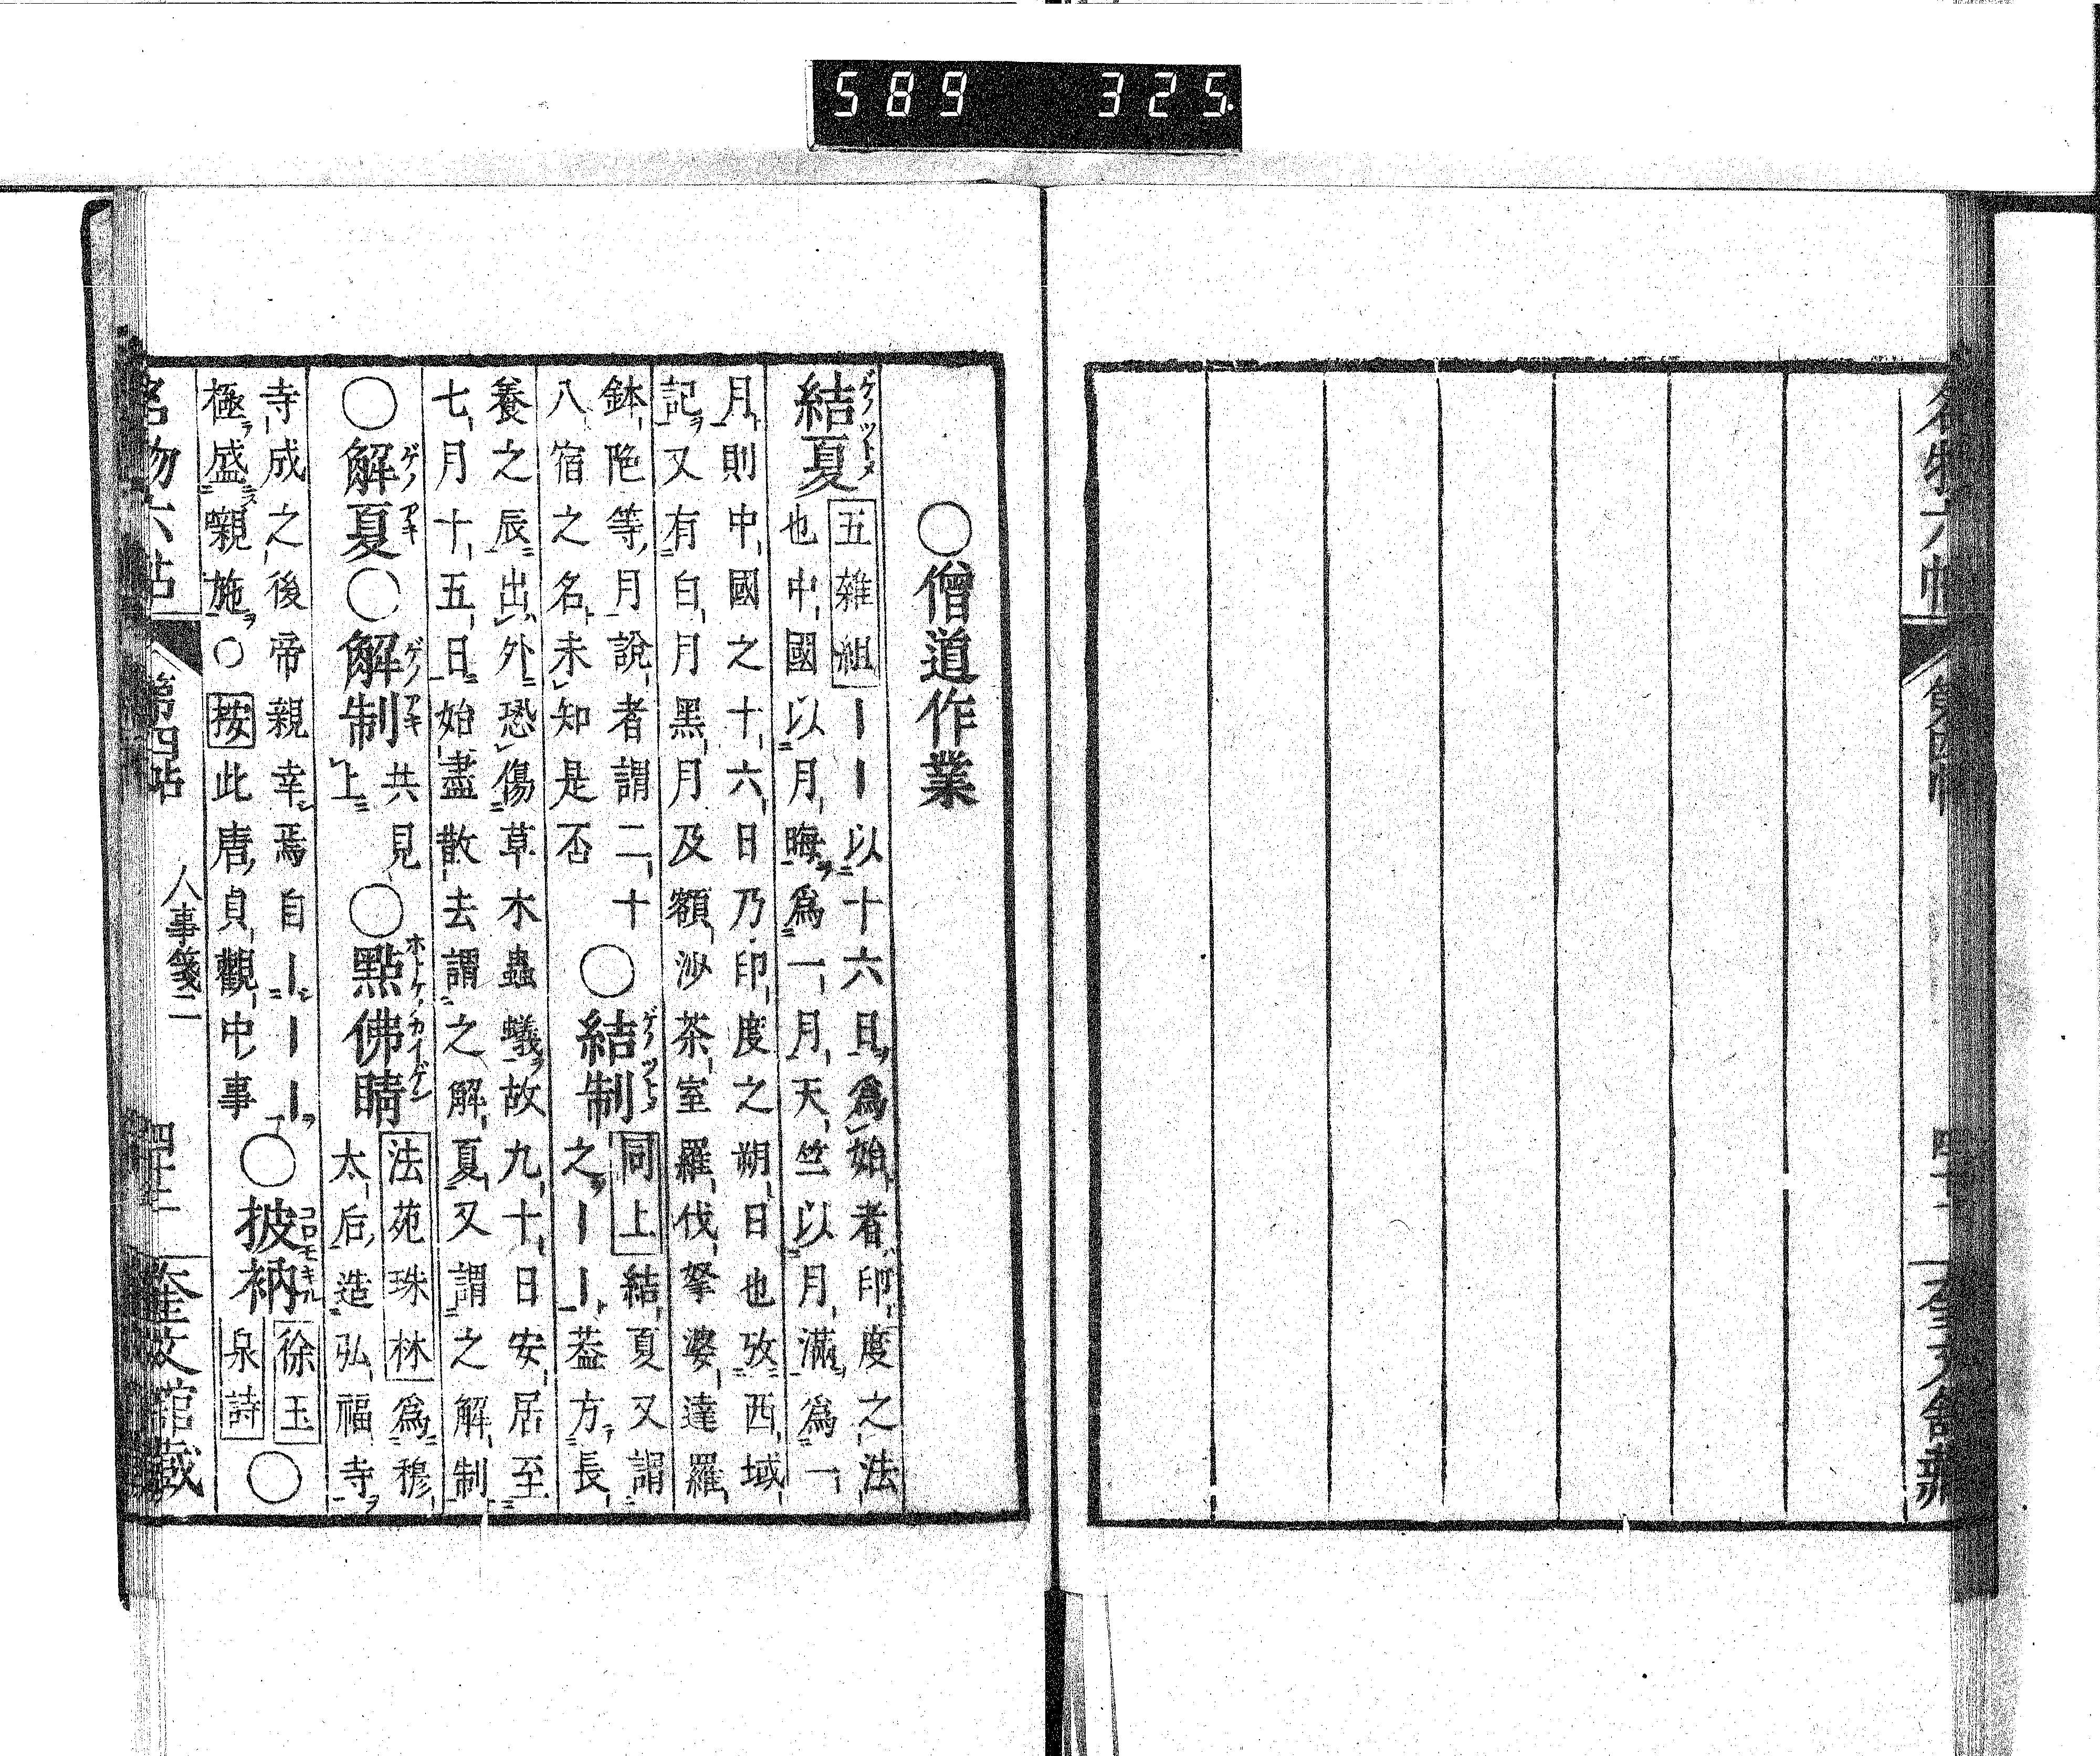 589 325
名物六帖 第四帖 四十一 奎文館藏
○僧道作業
結夏 ゲノツトメ 五雜組 ーー以十六日爲始者印度之法
也中國以月晦爲一月天竺以月滿爲一
月則中國之十六日乃印度之朔日也攷西域
記又有白月黑月及額沙荼室羅伐拏婆達羅
鉢陁等月說者謂二十
八宿之名未知是否
○結制 ゲノツトメ 同上 結夏又謂
之ーー葢方長
養之辰出外恐傷草木蟲蟻故九十日安居至
七月十五日始盡散去謂之解夏又謂之解制
○解夏 ゲノアキ ○解制 ゲノアキ 共見
上
○點佛睛 ホトケノカイゲン 法苑珠林 爲穆
太后造弘福寺
寺成之後帝親幸焉自ーーー
極盛䞋施○按此唐貞觀中事
○披衲 コロモキル 徐玉
泉詩
○
名物六帖 第四帖 人事箋二 四十二 奎文館藏